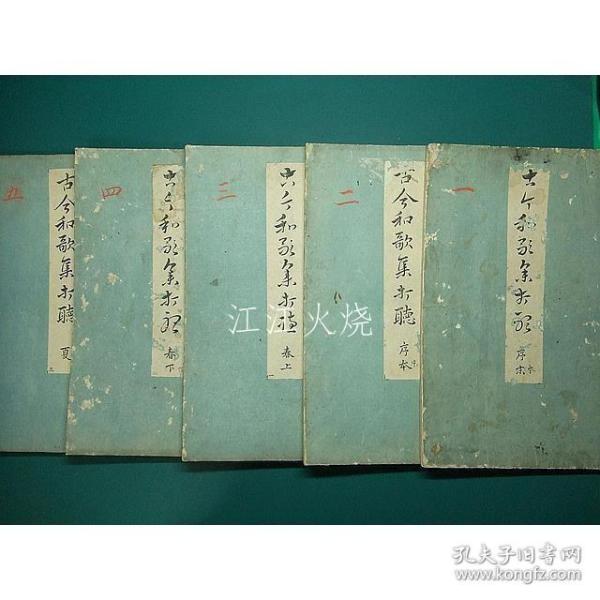 一
古今和歌集打聴
序
二
古今和歌集打聽
序本
三
古今和歌集打聴
春上
四
古今和歌集打聴
春下
五
古今和歌集打聽
夏
江江火烧
孔夫子旧书网
www.kongfz.com